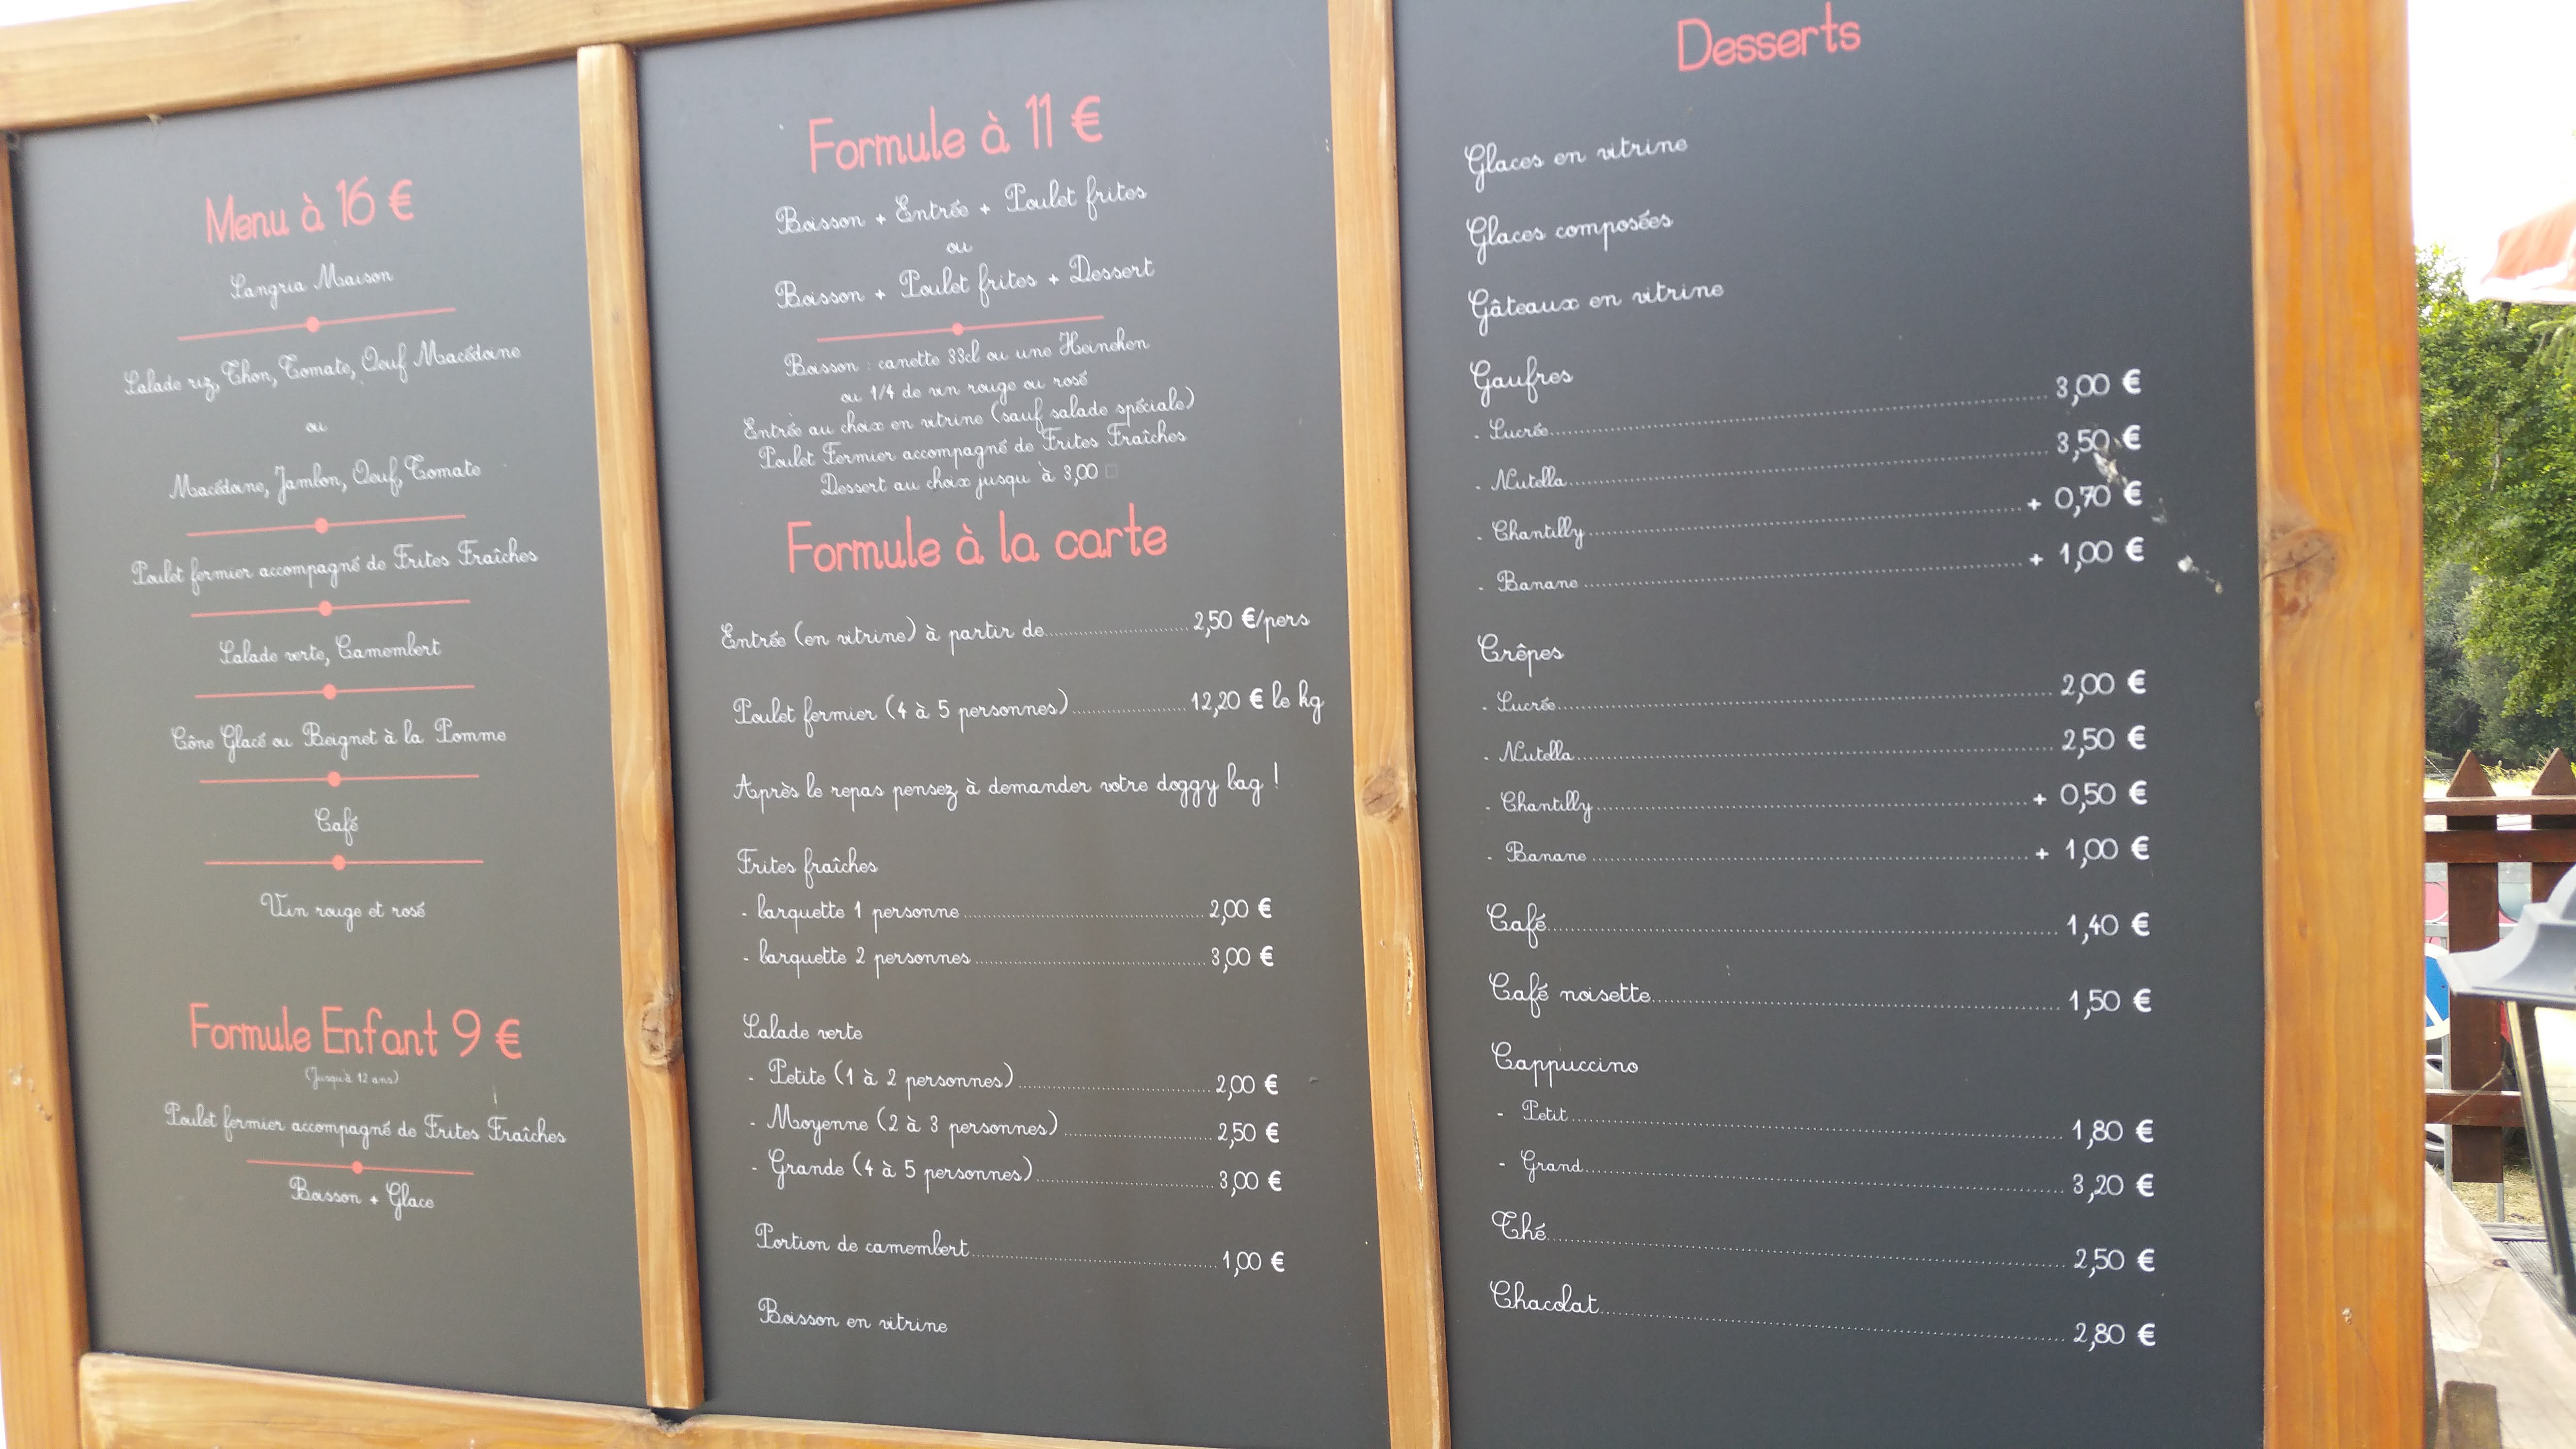 Menu à 16 €
Sangria Maison
Salade riz, Thon, Tomate, Oeuf Macédoine
ou
Macédoine, Jambon, Oeuf, Tomate
Poulet fermier accompagné de Frites Fraîches
Salade verte, Camembert
Cône Glacé ou Beignet à la Pomme
Café
Vin rouge et rosé
Formule Enfant 9 €
(Jusqu'à 12 ans)
Poulet fermier accompagné de Frites Fraîches
Boisson + Glace
Formule à 11 €
Boisson + Entrée + Poulet frites
ou
Boisson + Poulet frites + Dessert
Boisson : canette 33cl ou une Heineken
ou 1/4 de vin rouge ou rosé
Entrée au choix en vitrine (sauf salade spéciale)
Poulet Fermier accompagné de Frites Fraîches
Dessert au choix jusqu'à 3,00 □
Formule à la carte
Entrée (en vitrine) à partir de 2,50 €/pers
Poulet fermier (4 à 5 personnes) 12,20 € le kg
Après le repas pensez à demander votre doggy bag !
Frites fraîches
- barquette 1 personne 2,00 €
- barquette 2 personnes 3,00 €
Salade verte
- Petite (1 à 2 personnes) 2,00 €
- Moyenne (2 à 3 personnes) 2,50 €
- Grande (4 à 5 personnes) 3,00 €
Portion de camembert 1,00 €
Boisson en vitrine
Desserts
Glaces en vitrine
Glaces composées
Gâteaux en vitrine
Gaufres
- Sucrée 3,00 €
- Nutella 3,50 €
- Chantilly + 0,70 €
- Banane + 1,00 €
Crêpes
- Sucrée 2,00 €
- Nutella 2,50 €
- Chantilly + 0,50 €
- Banane + 1,00 €
Café 1,40 €
Café noisette 1,50 €
Cappuccino
- Petit 1,80 €
- Grand 3,20 €
Thé 2,50 €
Chocolat 2,80 €